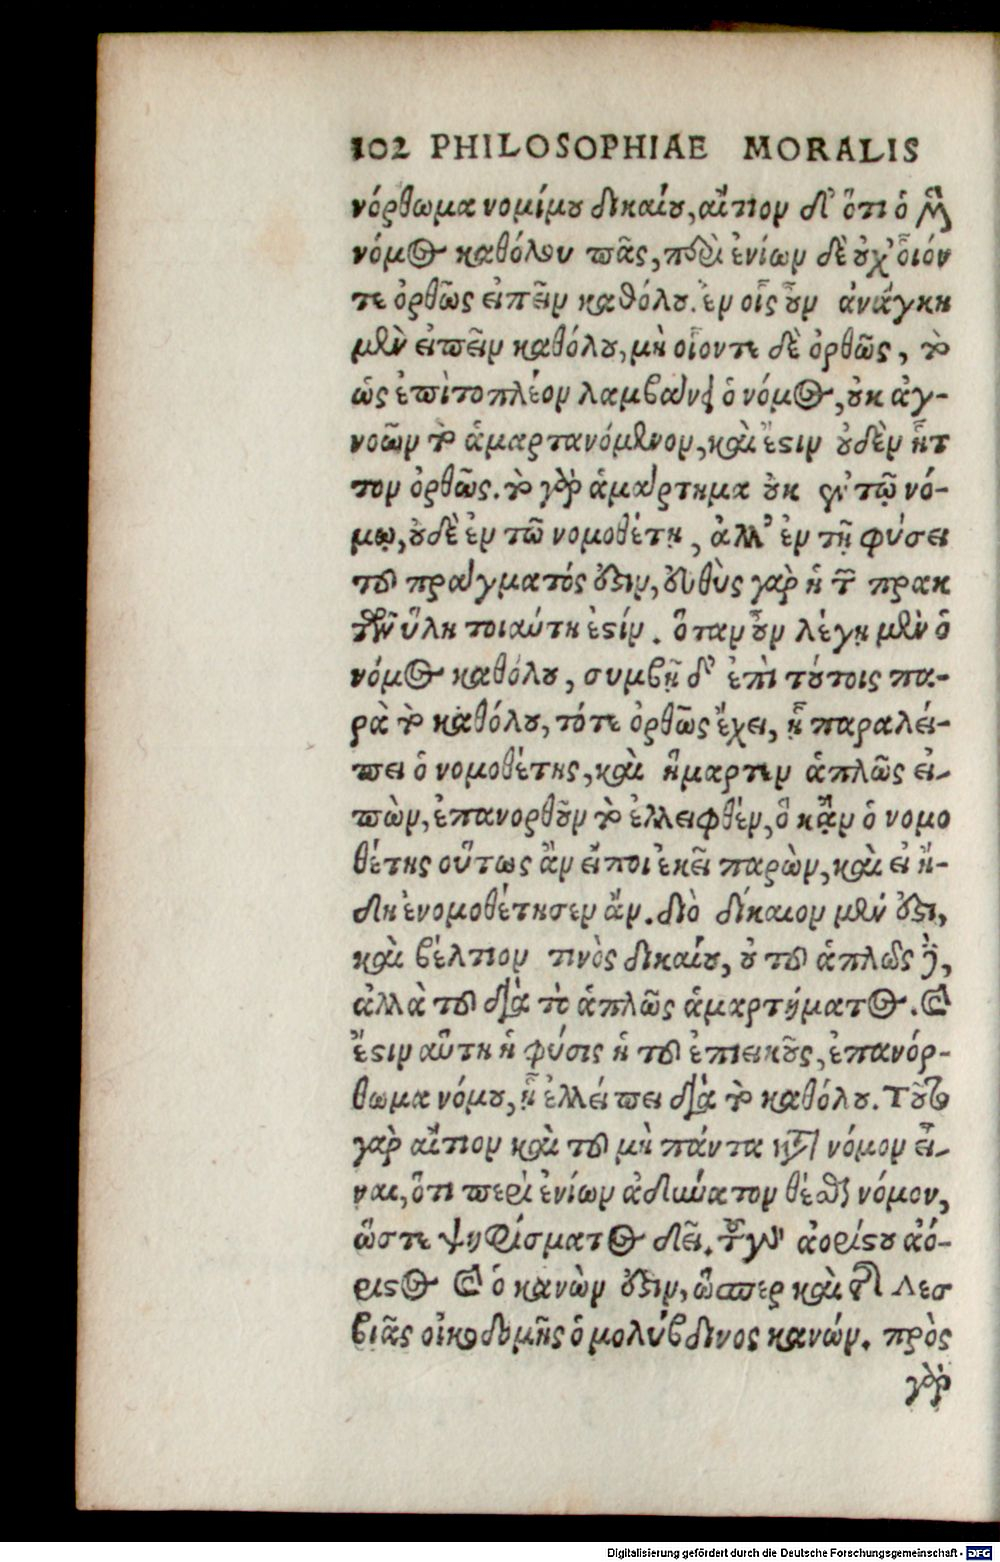 102 PHILOSOPHIAE MORALIS
νόρθωμα νομίμου δικαίου, αἴτιον δ' ὅτι ὁ μὲν
νόμος καθόλου πᾶς, περὶ ἐνίων δὲ οὐχ' οἷόν
τε ὀρθῶς εἰπεῖν καθόλου. ἐν οἷς οὖν ἀνάγκη
μὲν εἰπεῖν καθόλου, μὴ οἷόντε δὲ ὀρθῶς, τὸ
ὡς ἐπὶ τὸ πλέον λαμβάνει ὁ νόμος, οὐκ ἀγ-
νοῶν τὸ ἁμαρτανόμενον, καὶ ἔστιν οὐδὲν ἧτ
τον ὀρθῶς. τὸ γὰρ ἁμάρτημα οὐκ ἐν τῷ νό-
μῳ, οὐδὲ ἐν τῶ νομοθέτῃ, ἀλλ' ἐν τῇ φύσει
τοῦ πράγματός ἐστιν, εὐθὺς γὰρ ἡ τῶν πρακ
τῶν ὕλη τοιαύτη ἐστίν. ὅταν οὖν λέγῃ μὲν ὁ
νόμος καθόλου, συμβῇ δ' ἐπὶ τούτοις πα-
ρὰ τὸ καθόλου, τότε ὀρθῶς ἔχει, ᾗ παραλεί-
πει ὁ νομοθέτης, καὶ ἥμαρτεν ἁπλῶς εἰ-
πὼν, ἐπανορθοῦν τὸ ἐλλειφθέν, ὃ κᾂν ὁ νομο
θέτης οὕτως ἂν εἴποι ἐκεῖ παρὼν, καὶ εἰ ἤ-
δη ἐνομοθέτησεν ἄν. διὸ δίκαιον μέν ἐστι,
καὶ βέλτιον τινὸς δικαίου, οὐ τοῦ ἁπλῶς δὲ,
ἀλλὰ τοῦ διὰ τὸ ἁπλῶς ἁμαρτήματος. καὶ
ἔστιν αὕτη ἡ φύσις ἡ τοῦ ἐπιεικοῦς, ἐπανόρ-
θωμα νόμου, ᾗ ἐλλείπει διὰ τὸ καθόλου. Τοῦτο
γὰρ αἴτιον καὶ τοῦ μὴ πάντα κατὰ νόμον εἶ-
ναι, ὅτι περὶ ἐνίων ἀδύνατον θέσθαι νόμον,
ὥστε ψηφίσματος δεῖ. τοῦ γὰρ ἀορίστου ἀό-
ριστος καὶ ὁ κανὼν ἐστιν, ὥσπερ καὶ τῆς Λεσ
βιᾶς οἰκοδομῆς ὁ μολύβδινος κανών. πρὸς
γὰρ
Digitalisierung gefördert durch die Deutsche Forschungsgemeinschaft - DFG